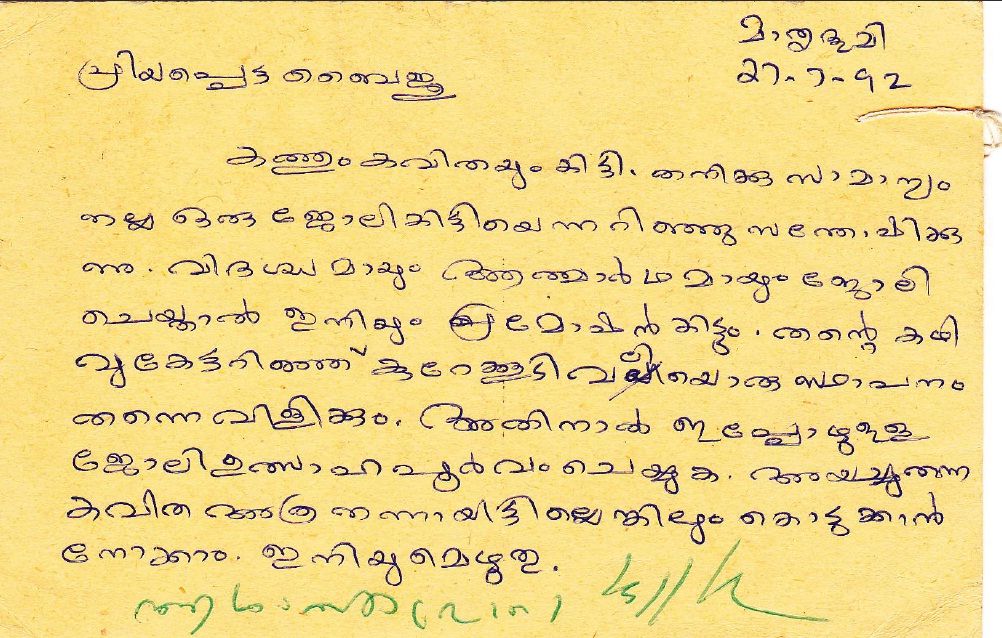 മാതൃഭൂമി
27-7-92
പ്രിയപ്പെട്ട ബൈജൂ
കത്തും കവിതയും കിട്ടി. തനിക്കു സാമാന്യം
നല്ല ഒരു ജോലികിട്ടിയെന്നറിഞ്ഞു സന്തോഷിക്കു
ന്നു. വിദഗ്ദ്ധമായും ആത്മാർഥമായും ജോലി
ചെയ്താൽ ഇനിയും പ്രമോഷൻ കിട്ടും. തന്റെ കഴി
വുകേട്ടറിഞ്ഞ് കുറേക്കൂടി വലിയൊരു സ്ഥാപനം
തന്നെ വിളിക്കും. അതിനാൽ ഇപ്പോഴുള്ള
ജോലി ഉത്സാഹപൂർവം ചെയ്യുക. അയച്ചുതന്ന
കവിത അത്ര നന്നായിട്ടില്ലെങ്കിലും കൊടുക്കാൻ
നോക്കാം. ഇനിയുമെഴുതൂ.